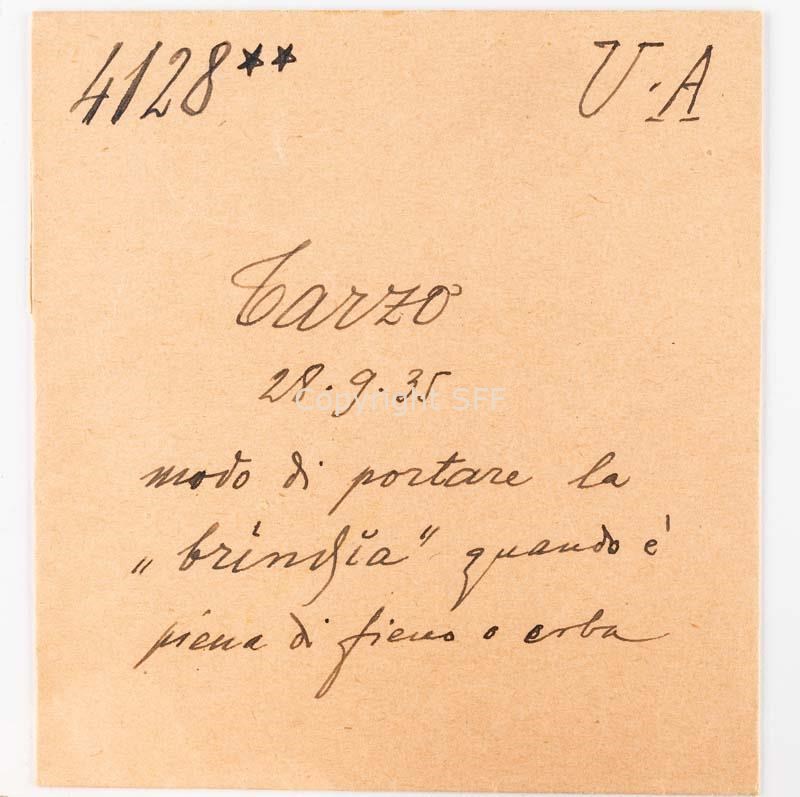 4128** U.A
Tarzo
28.9.35
Copyright SFF
modo di portare la
„brindĭa" quando è
piena di fieno o erba